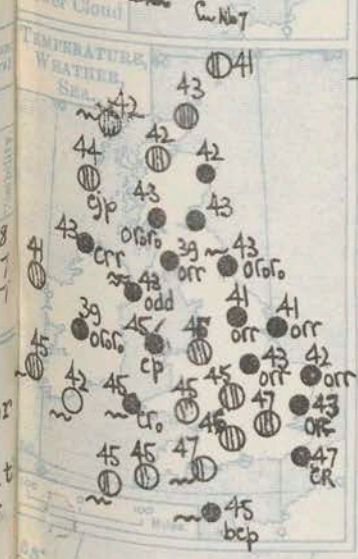 er Cloud
TEMPERATURE,
WEATHER,
SEA.
41
43
42
42
44
42
gp
43
43
ororo
43
crr
39
orr
43
ororo
41
43
odd
39
ororo
41
orr
41
orr
45
cp
45
45
43
orr
42
orr
42
45
cro
45
45
47
43
OR
46
45
45
47
47
CR
45
bcp
100